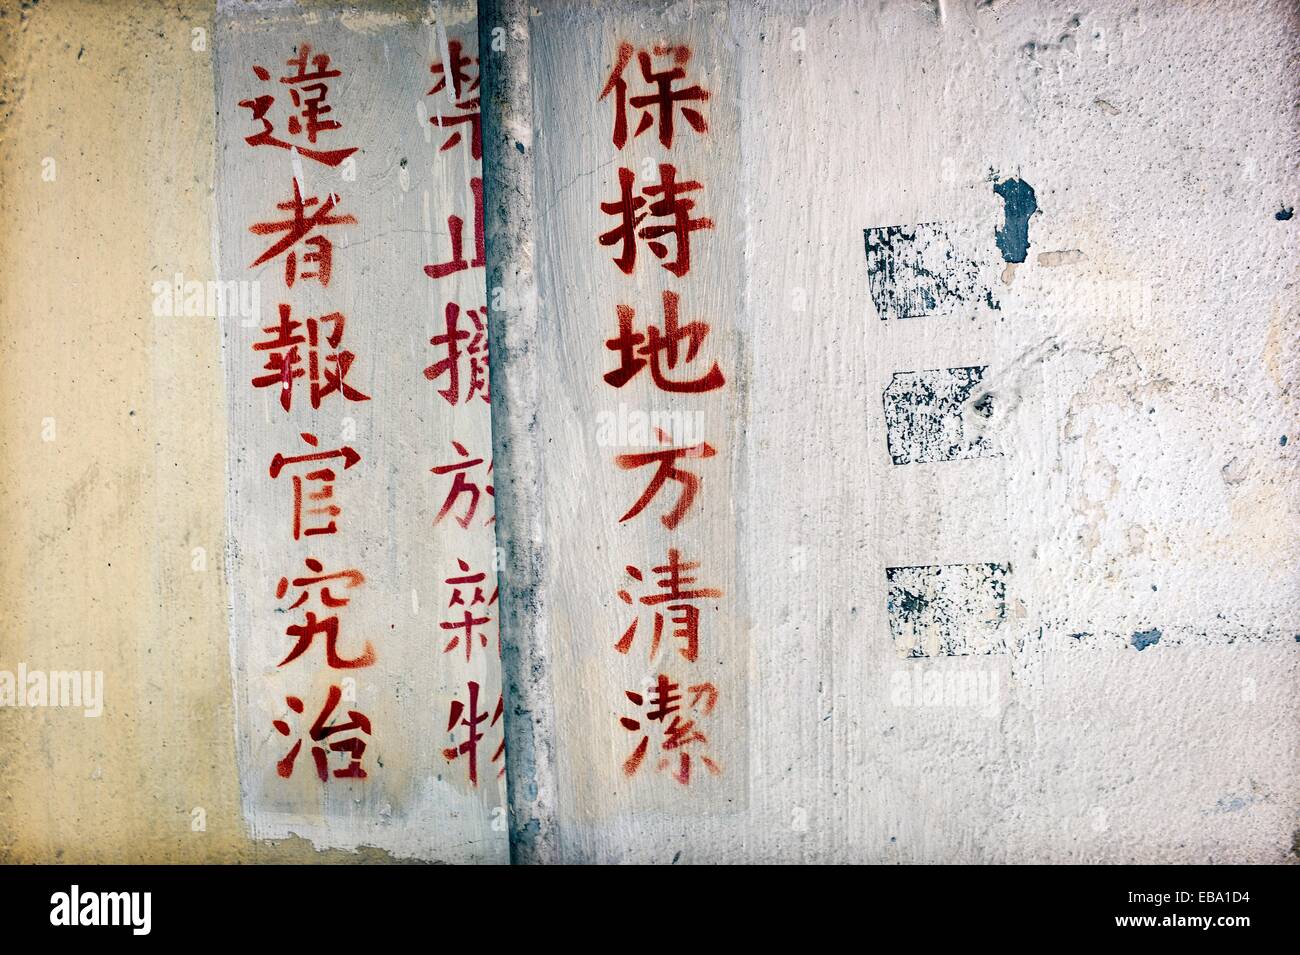 保持地方清潔
禁止擺放雜物
違者報官究治
alamy
alamy
EBA1D4
www.alamy.com